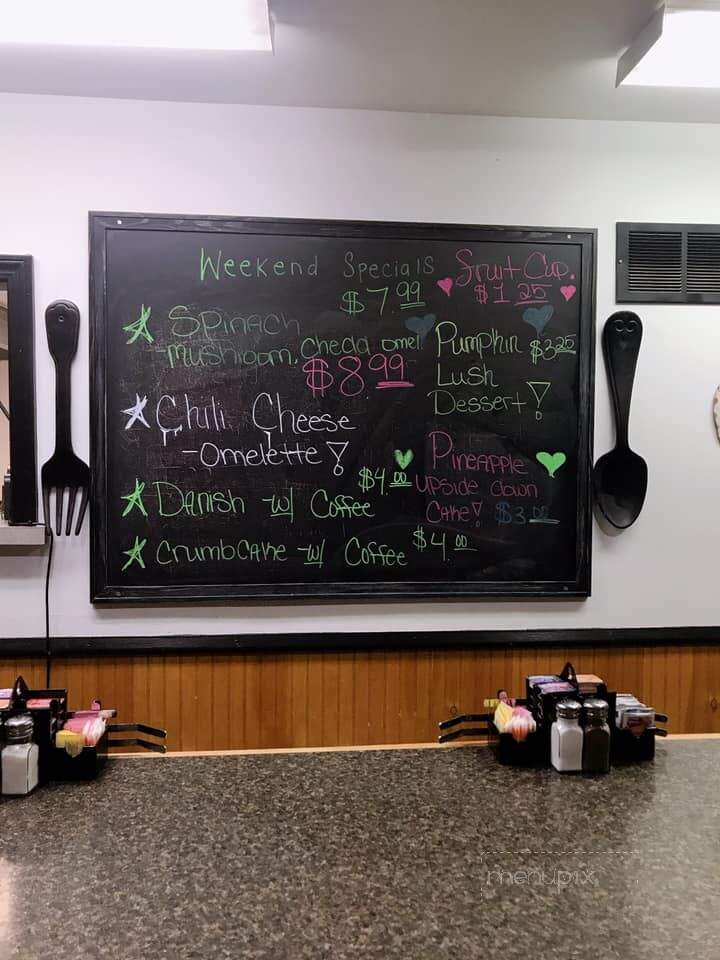 Weekend Specials
$7.99
Spinach
-mushroom, chedd omel
$8.99
Chili Cheese
-Omelette!
$4.00
Danish w/ Coffee
CrumbCake w/ Coffee $4.00
Fruit Cup.
$1.25
Pumpkin $3.25
Lush
Dessert!
Pineapple
upside down
Cake! $3.00
menupix